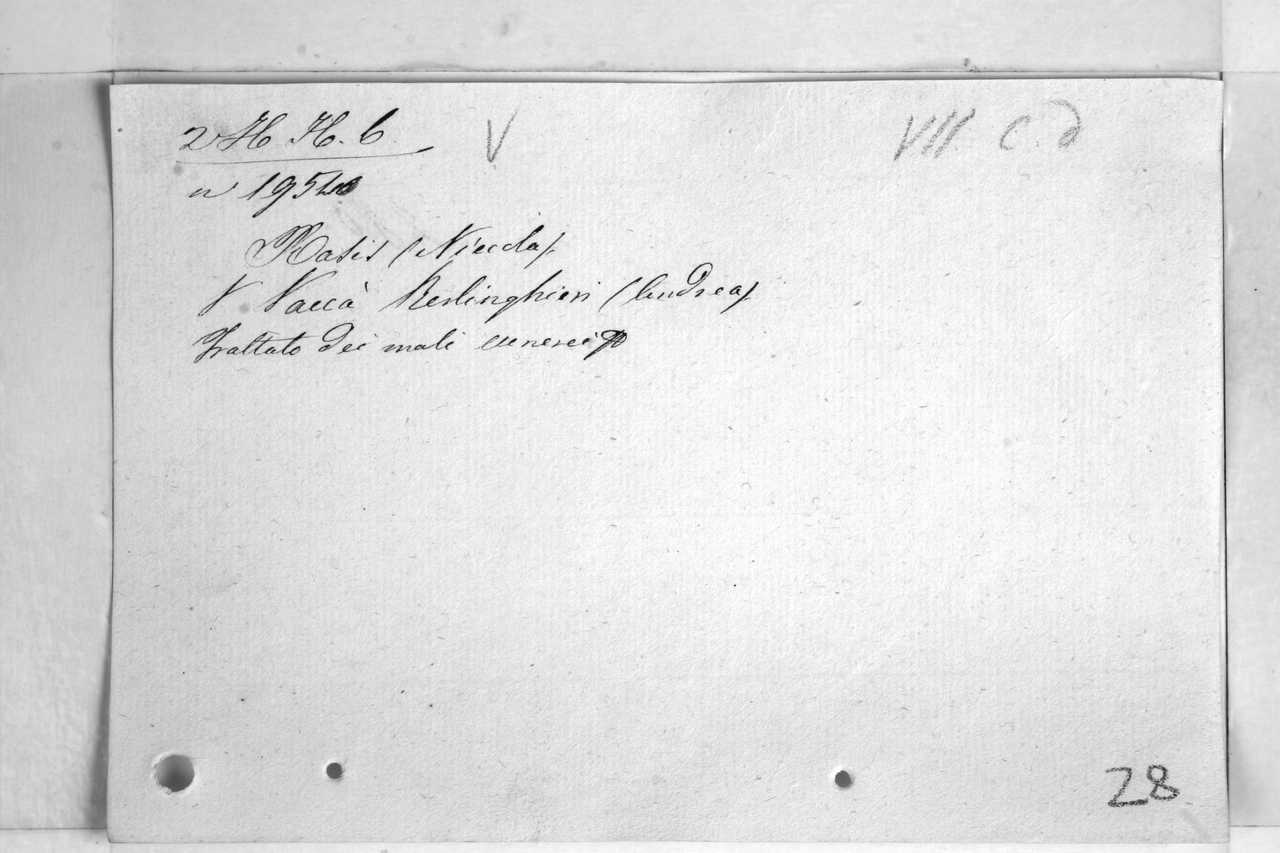 2 H H. 6. V VII C. d
n 195
Ratis (Niccola).
V Vaccà Berlinghieri (Andrea).
Trattato dei mali venerei
28